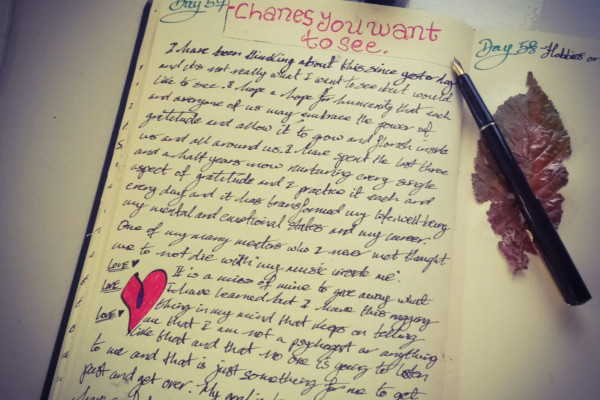 Day 57 - Chanes You want
to see.
I have been thinking about this since yesterday
and its not really what I want to see but would
like to see. I hope a hope for humanity that each
and everyone of us may embrace the power of
gratitude and allow it to grow and florish inside
us and all around us. I have spent the last three
and a half years now nurturing every single
aspect of gratitude and I practice it each and
every day and it has transformed my life, well-being
my mental and emotional states and my career.
One of my many mentors who I have met thought
me to not die with "my music inside me".
It is a miss of mine to give away what
I have learned but I have this nagging
thing in my mind that keeps on telling
me that I am not a psychogist or anything
like that and that no one is going to listen
to me and that is just something for me to get
past and get over. My goal is
LOVE
LOVE
LOVE
Day 58 - Hobbies or